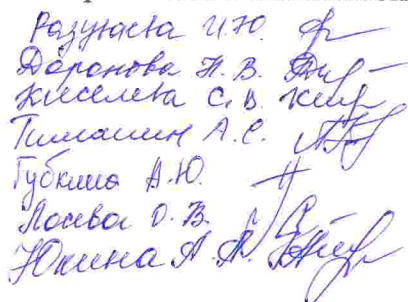 Разуваева И.Ю.
Доронова Н.В.
Киселева С.В.
Тимашин А.С.
Губкина А.Ю.
Лосева О.В.
Юкина А.А.